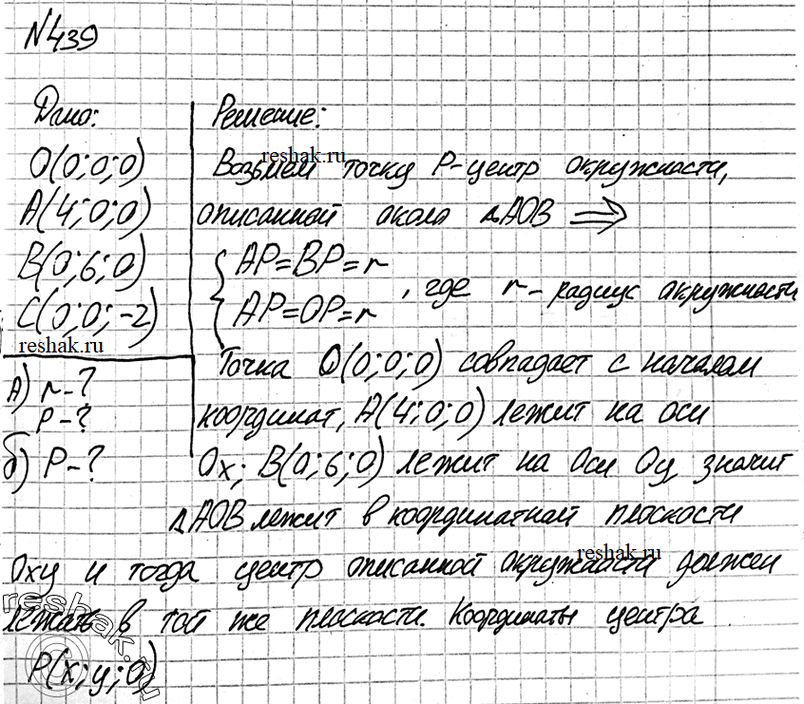 №439
Дано:
O(0;0;0)
A(4;0;0)
B(0;6;0)
C(0;0;-2)
reshak.ru
а) r-?
P-?
б) P-?
Решение:
reshak.ru
Возьмем точку P-центр окружности,
описанной около ΔAOB ⟹
{ AP=BP=r
AP=OP=r , где r- радиус окружности
Точка O(0;0;0) совпадает с началом
координат, A(4;0;0) лежит на оси
Ox; B(0;6;0) лежит на оси Oy значит
ΔAOB лежит в координатной плоскости
reshak.ru
Oxy и тогда центр описанной окружности должен
лежать в той же плоскости. Координаты центра
P(x;y;0)
reshak.ru